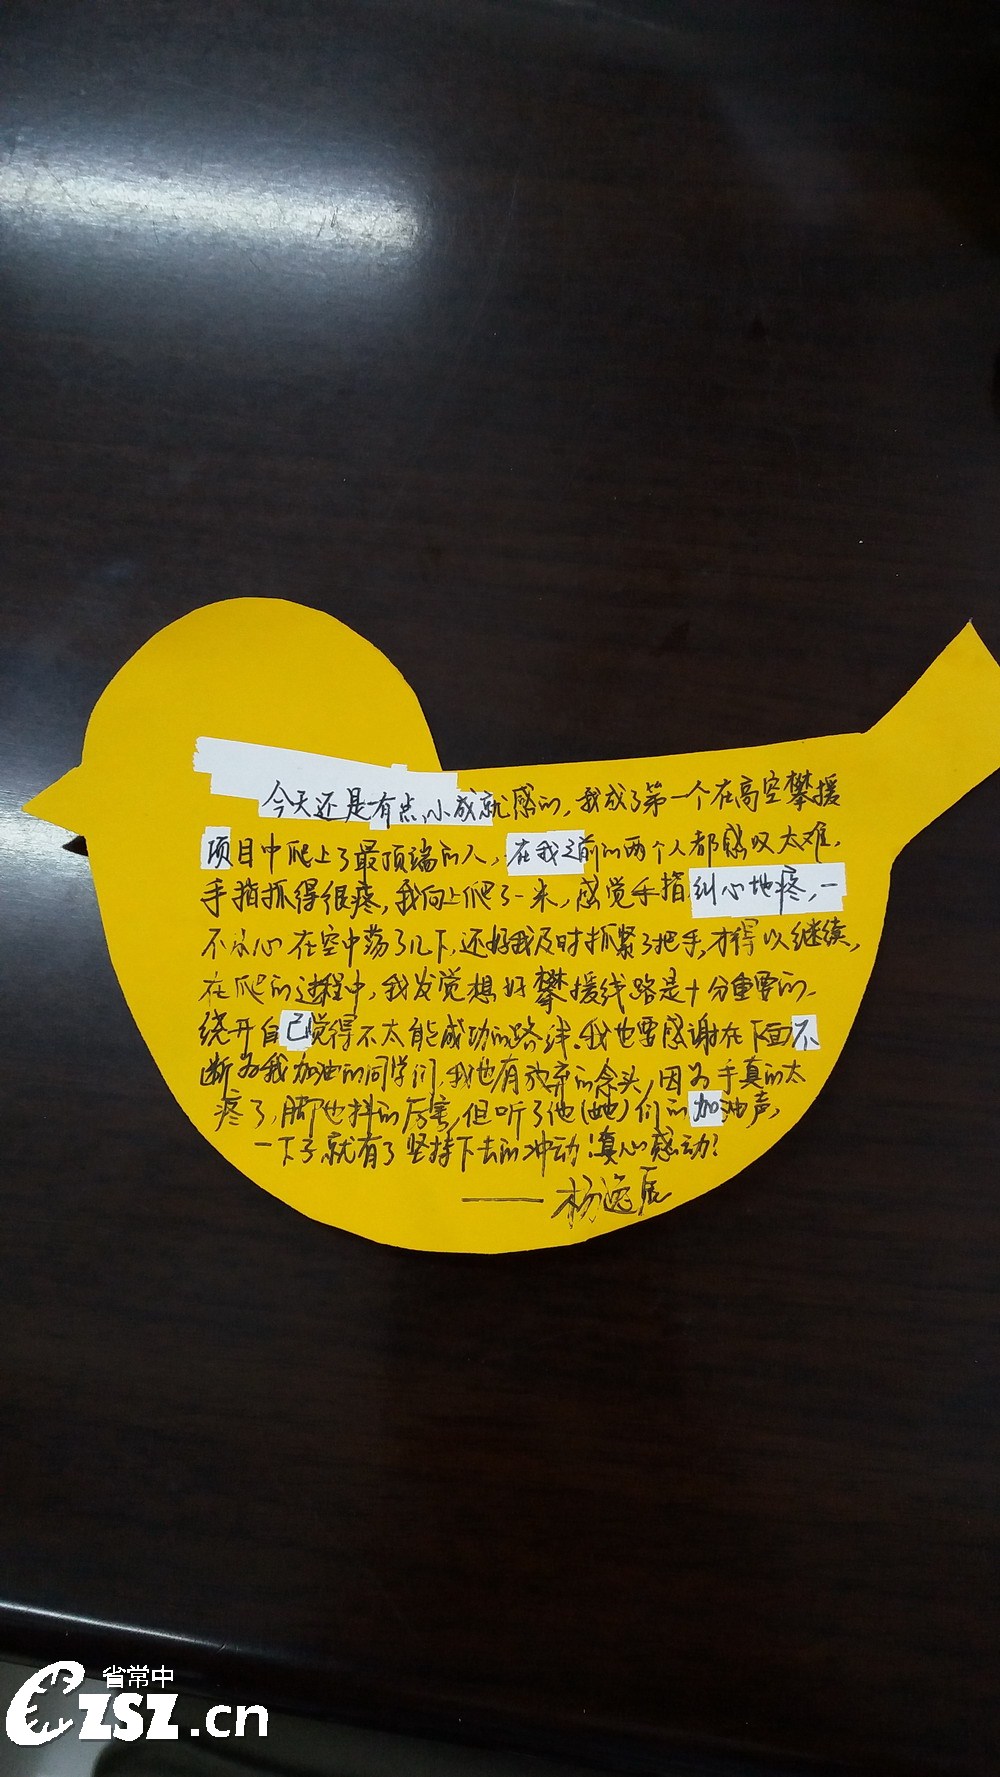 今天还是有点小成就感的，我成了第一个在高空攀援
项目中爬上了最顶端的人，在我之前的两个人都感叹太难，
手指抓得很疼，我向上爬了一米，感觉手指纠心地疼，一
不小心在空中荡了几下，还好我及时抓紧了把手，才得以继续，
在爬的过程中，我发觉想好攀援线路是十分重要的，
绕开自己觉得不太能成功的路线。我也要感谢在下面不
断为我加油的同学们，我也有放弃的念头，因为手真的太
疼了，脚也抖的厉害，但听了他(她)们的加油声，
一下子就有了坚持下去的冲动！真心感动！
——杨逸辰
省常中
CZSZ.cn